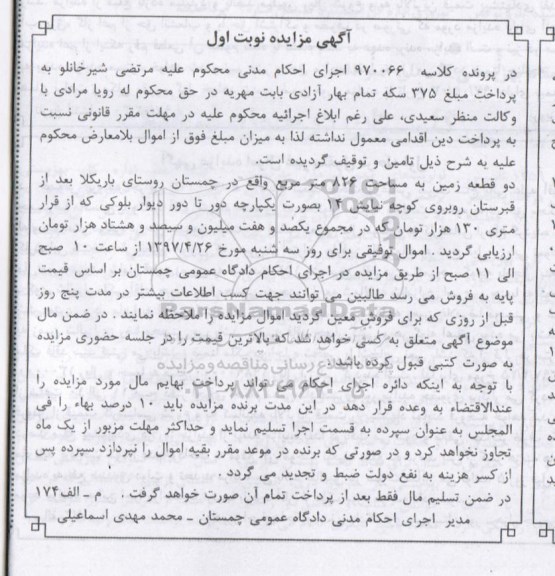 آگهی مزایده نوبت اول
در پرونده کلاسه ۹۷۰۰۶۶ اجرای احکام مدنی محکوم علیه مرتضی شیرخانلو به
پرداخت مبلغ ۳۷۵ سکه تمام بهار آزادی بابت مهریه در حق محکوم له رویا مرادی با
وکالت منظر سعیدی، علی رغم ابلاغ اجرائیه محکوم علیه در مهلت مقرر قانونی نسبت
به پرداخت دین اقدامی معمول نداشته لذا به میزان مبلغ فوق از اموال بلامعارض محکوم
علیه به شرح ذیل تامین و توقیف گردیده است.
دو قطعه زمین به مساحت ۸۲۶ متر مربع واقع در چمستان روستای باریکلا بعد از
قبرستان روبروی کوچه نیایش ۱۴ بصورت یکپارچه دور تا دور دیوار بلوکی که از قرار
متری ۱۳۰ هزار تومان که در مجموع یکصد و هفت میلیون و سیصد و هشتاد هزار تومان
ارزیابی گردید . اموال توقیفی برای روز سه شنبه مورخ ۱۳۹۷/۴/۲۶ از ساعت ۱۰ صبح
الی ۱۱ صبح از طریق مزایده در اجرای احکام دادگاه عمومی چمستان بر اساس قیمت
پایه به فروش می رسد طالبین می توانند جهت کسب اطلاعات بیشتر در مدت پنج روز
قبل از روزی که برای فروش معین گردید اموال مزایده را ملاحظه نمایند . در ضمن مال
موضوع آگهی متعلق به کسی خواهد شد که بالاترین قیمت را در جلسه حضوری مزایده
به صورت کتبی قبول کرده باشد.
با توجه به اینکه دائره اجرای احکام می تواند پرداخت بهایم مال مورد مزایده را
عندالاقتضاء به وعده قرار دهد در این مدت برنده مزایده باید ۱۰ درصد بهاء را فی
المجلس به عنوان سپرده به قسمت اجرا تسلیم نماید و حداکثر مهلت مزبور از یک ماه
تجاوز نخواهد کرد و در صورتی که برنده در موعد مقرر بقیه اموال را نپردازد سپرده پس
از کسر هزینه به نفع دولت ضبط و تجدید می گردد .
در ضمن تسلیم مال فقط بعد از پرداخت تمام آن صورت خواهد گرفت . م ـ الف۱۷۴
مدیر اجرای احکام مدنی دادگاه عمومی چمستان ـ محمد مهدی اسماعیلی